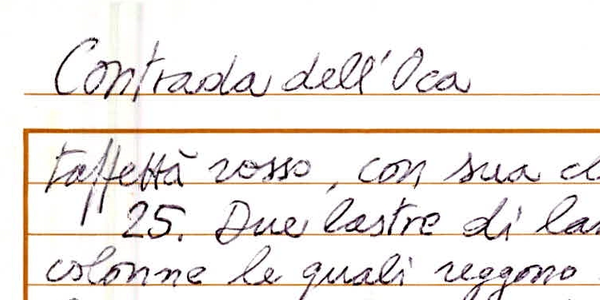 Contrada dell'Oca
taffettà rosso, con sua
25. Due lastre di
colonne le quali reggono